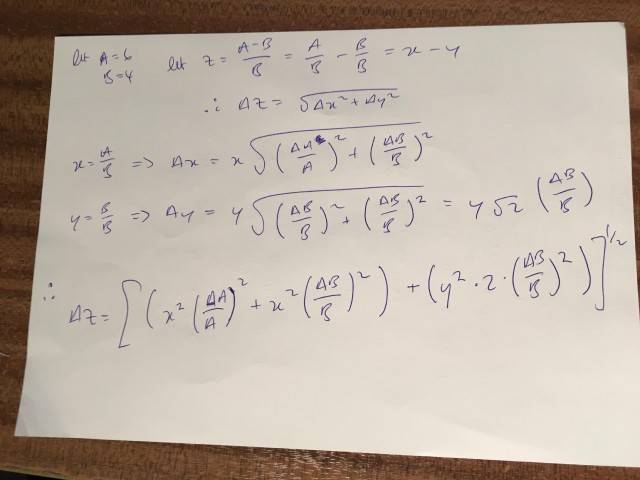 let A=6 let Z = A-B/B = A/B - B/B = x - y
B=4
∴ ΔZ = √(Δx² + Δy²)
x = A/B => Δx = x√((ΔA/A)² + (ΔB/B)²)
y = B/B => Δy = y√((ΔB/B)² + (ΔB/B)²) = y√2 (ΔB/B)
∴ ΔZ = [(x²(ΔA/A)² + x²(ΔB/B)²) + (y²·2·(ΔB/B)²)]^1/2